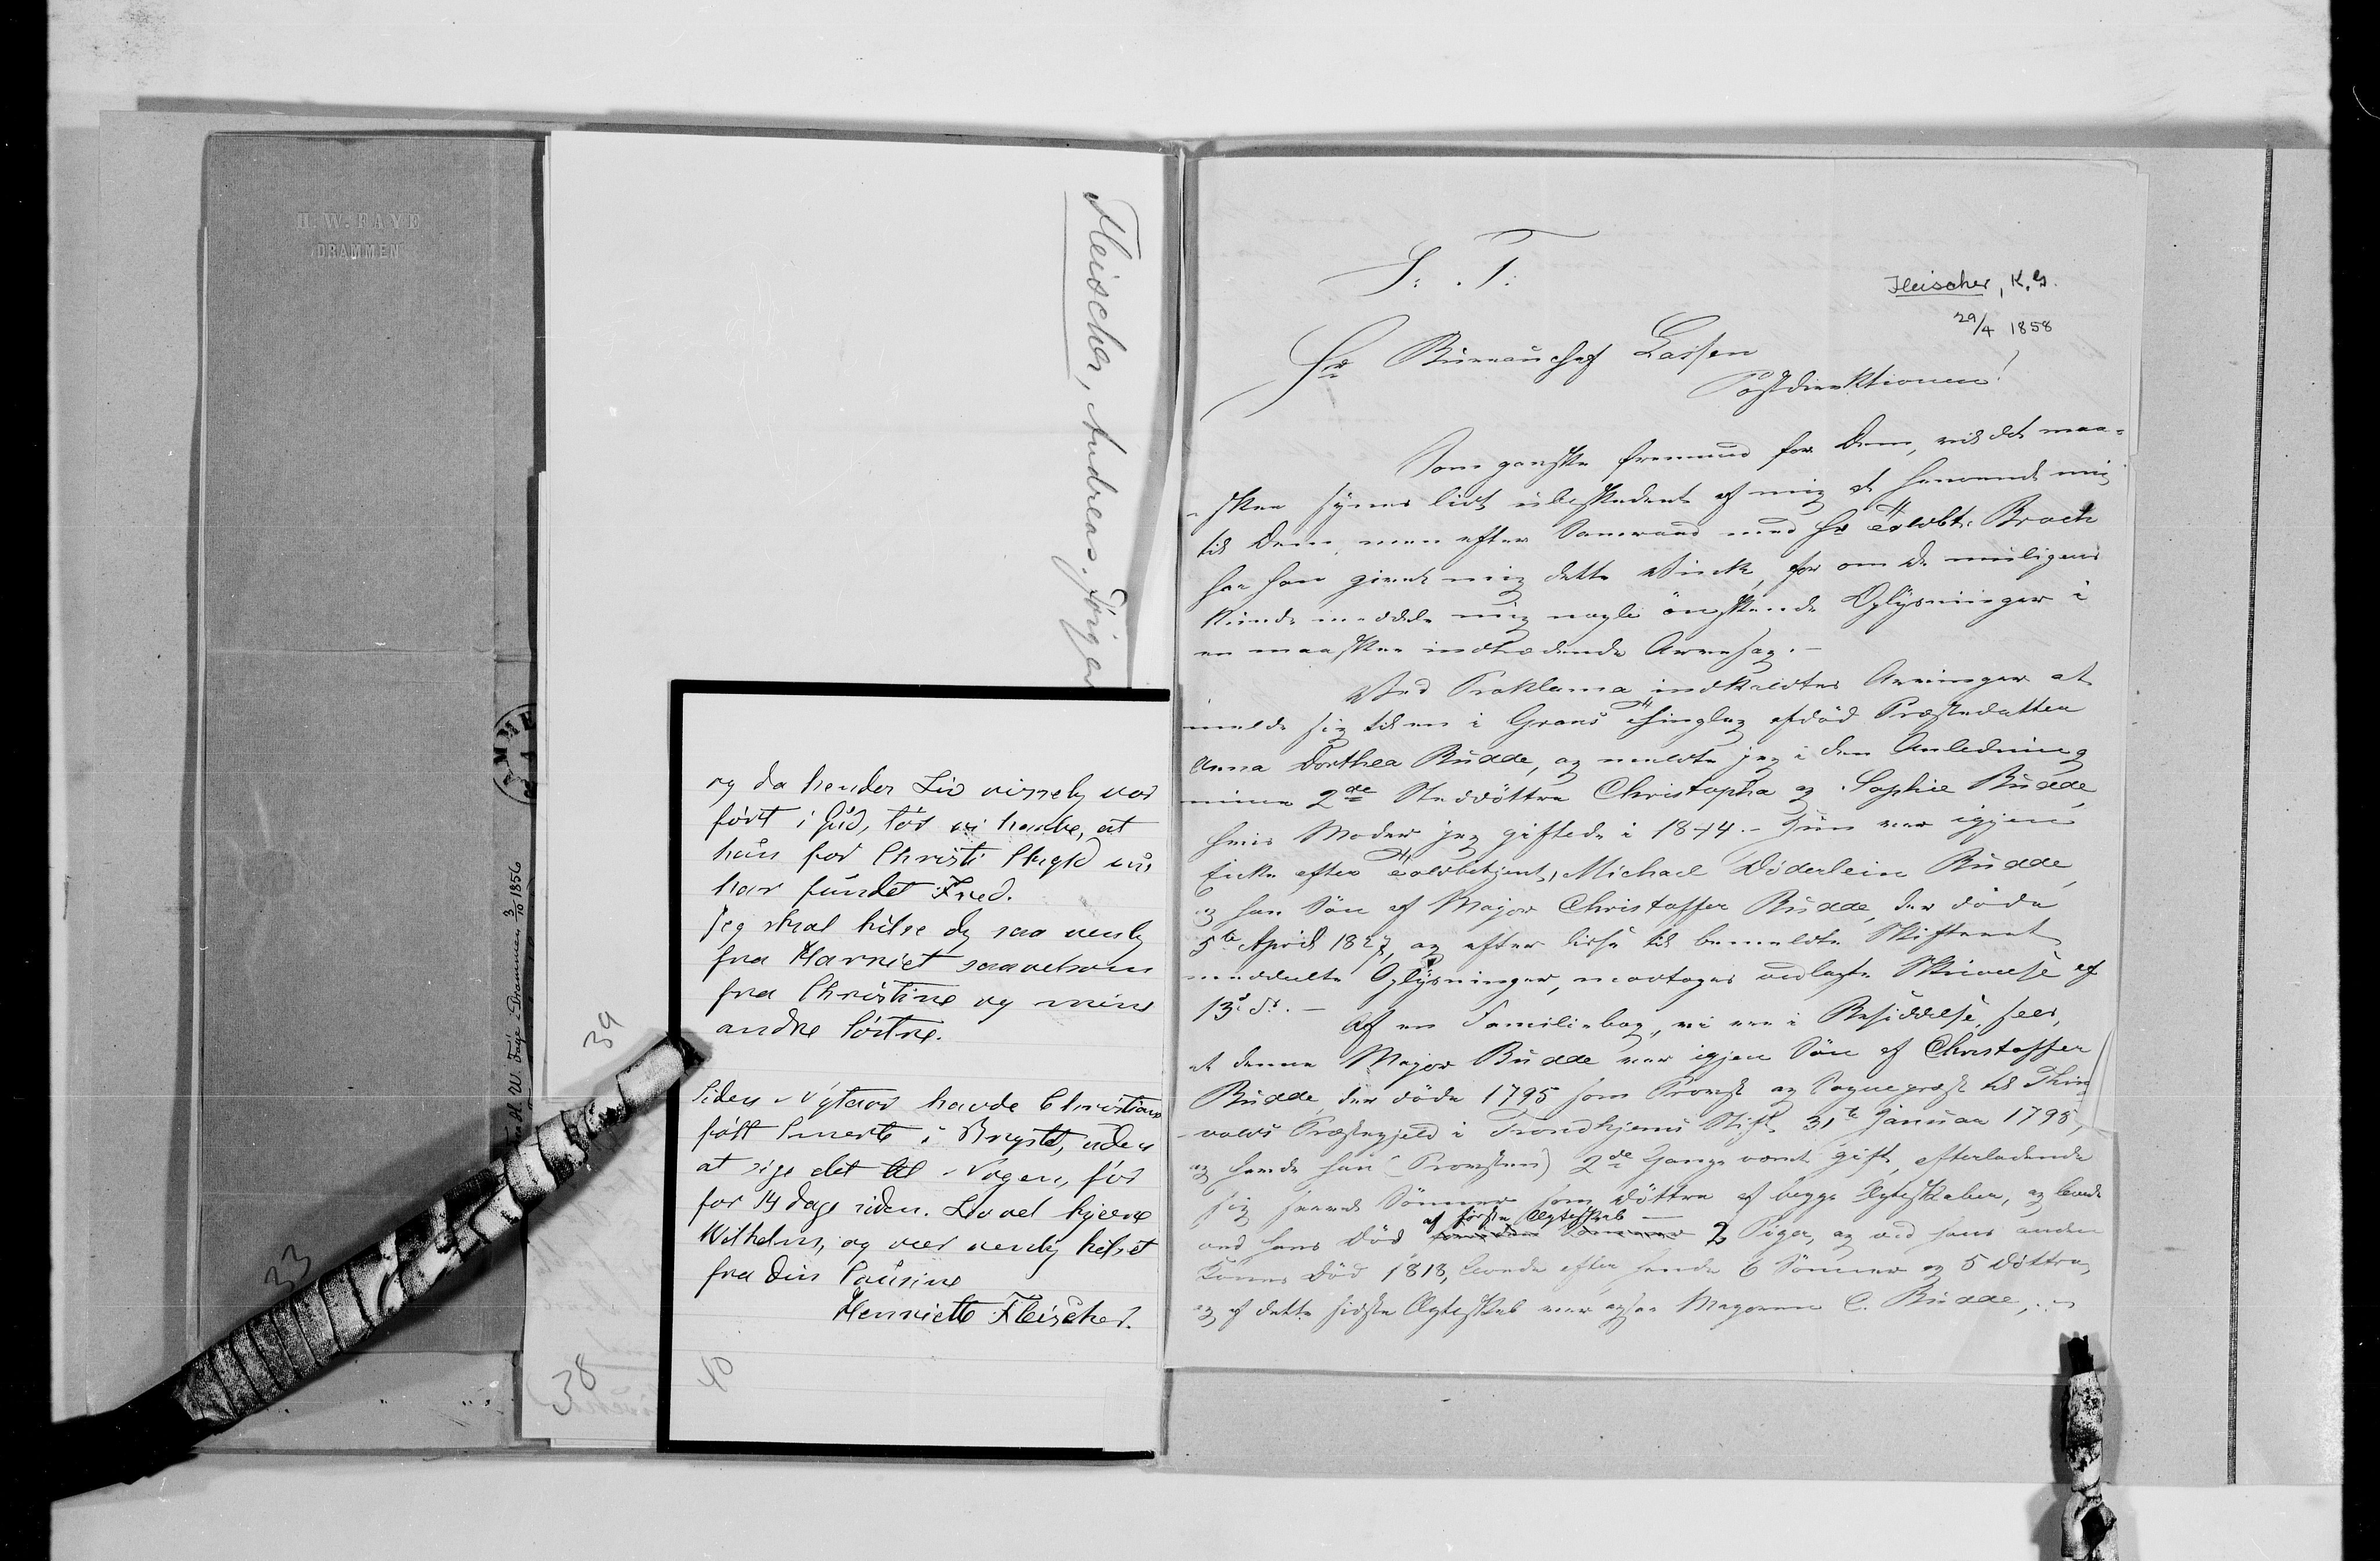 H. W. FAYE
DRAMMEN
H. W. Faye i Drammen 3/10 1856
Fleischer, Andreas. Jörgen
39
33
38
og da hendes Liv visselig var
ført i Gud, tør vi haabe, at
hun for Christi Skyld nu
har fundet Fred.
Jeg skal hilse dig saa venlig
fra Harriet saavelsom
fra Christine og mine
andre Söstre.
Siden Nytaar havde Christiane
følt Smerte i Brystet, uden
at sige det til Nogen, før
for 14 dage siden. Lev vel kjære
Wilhelm, og vær venlig hilset
fra din Cousine
Henriette Fleischer.
40
S. T.
Fleischer, K. G.
29/4 1858
Hr Bureauchef Lassen
Postdirektionen!
Som ganske fremmed for Dem, vil det maa-
skee synes lidt ubeskedent af mig at henvende mig
til Dem, men efter Samraad med Hr Toldbt. Brock
har han givet mig dette Vink, for om De muligens
kunde meddele mig nogle önskende Oplysninger i
en maaskee indtrædende Arvesag.-
Ved Proklama indkaldtes Arvinger at
melde sig til en i Grans Thinglag afdöd Præstedatter
Anna Dorthea Budde, og meldte jeg i den Anledning
mine 2de Steddöttre Christopha og Sophie Budde,
hvis Moder jeg giftede i 1844.- Hun var igjen
Enke efter Toldbetjent, Michael Döderlein Budde,
og han Sön af Major Christoffer Budde, der döde
5te April 1827, og efter disse til bemeldte Skifteret
meddelte Oplysninger, modtoges vedlagte Skrivelse af
13de ds. - Af en Familiebog, vi ere i Besiddelse, sees,
at denne Major Budde var igjen Sön af Christoffer
Budde, der döde 1795 som Provst og Sognepræst til Thing-
volds Præstegjeld i Trondhjems Stift 31te Januar 1795,
og havde han (Provsten) 2de Gange været gift, efterladende
sig saavel Sönner som Döttre af begge Ægteskaber, og levede
af förste Ægteskab
ved hans Död 2 Piger, og ved hans anden
Kones Död 1818, levede efter hende 6 Sönner og 5 Döttre,
og af dette sidste Ægteskab var ogsaa Majoren C. Budde,